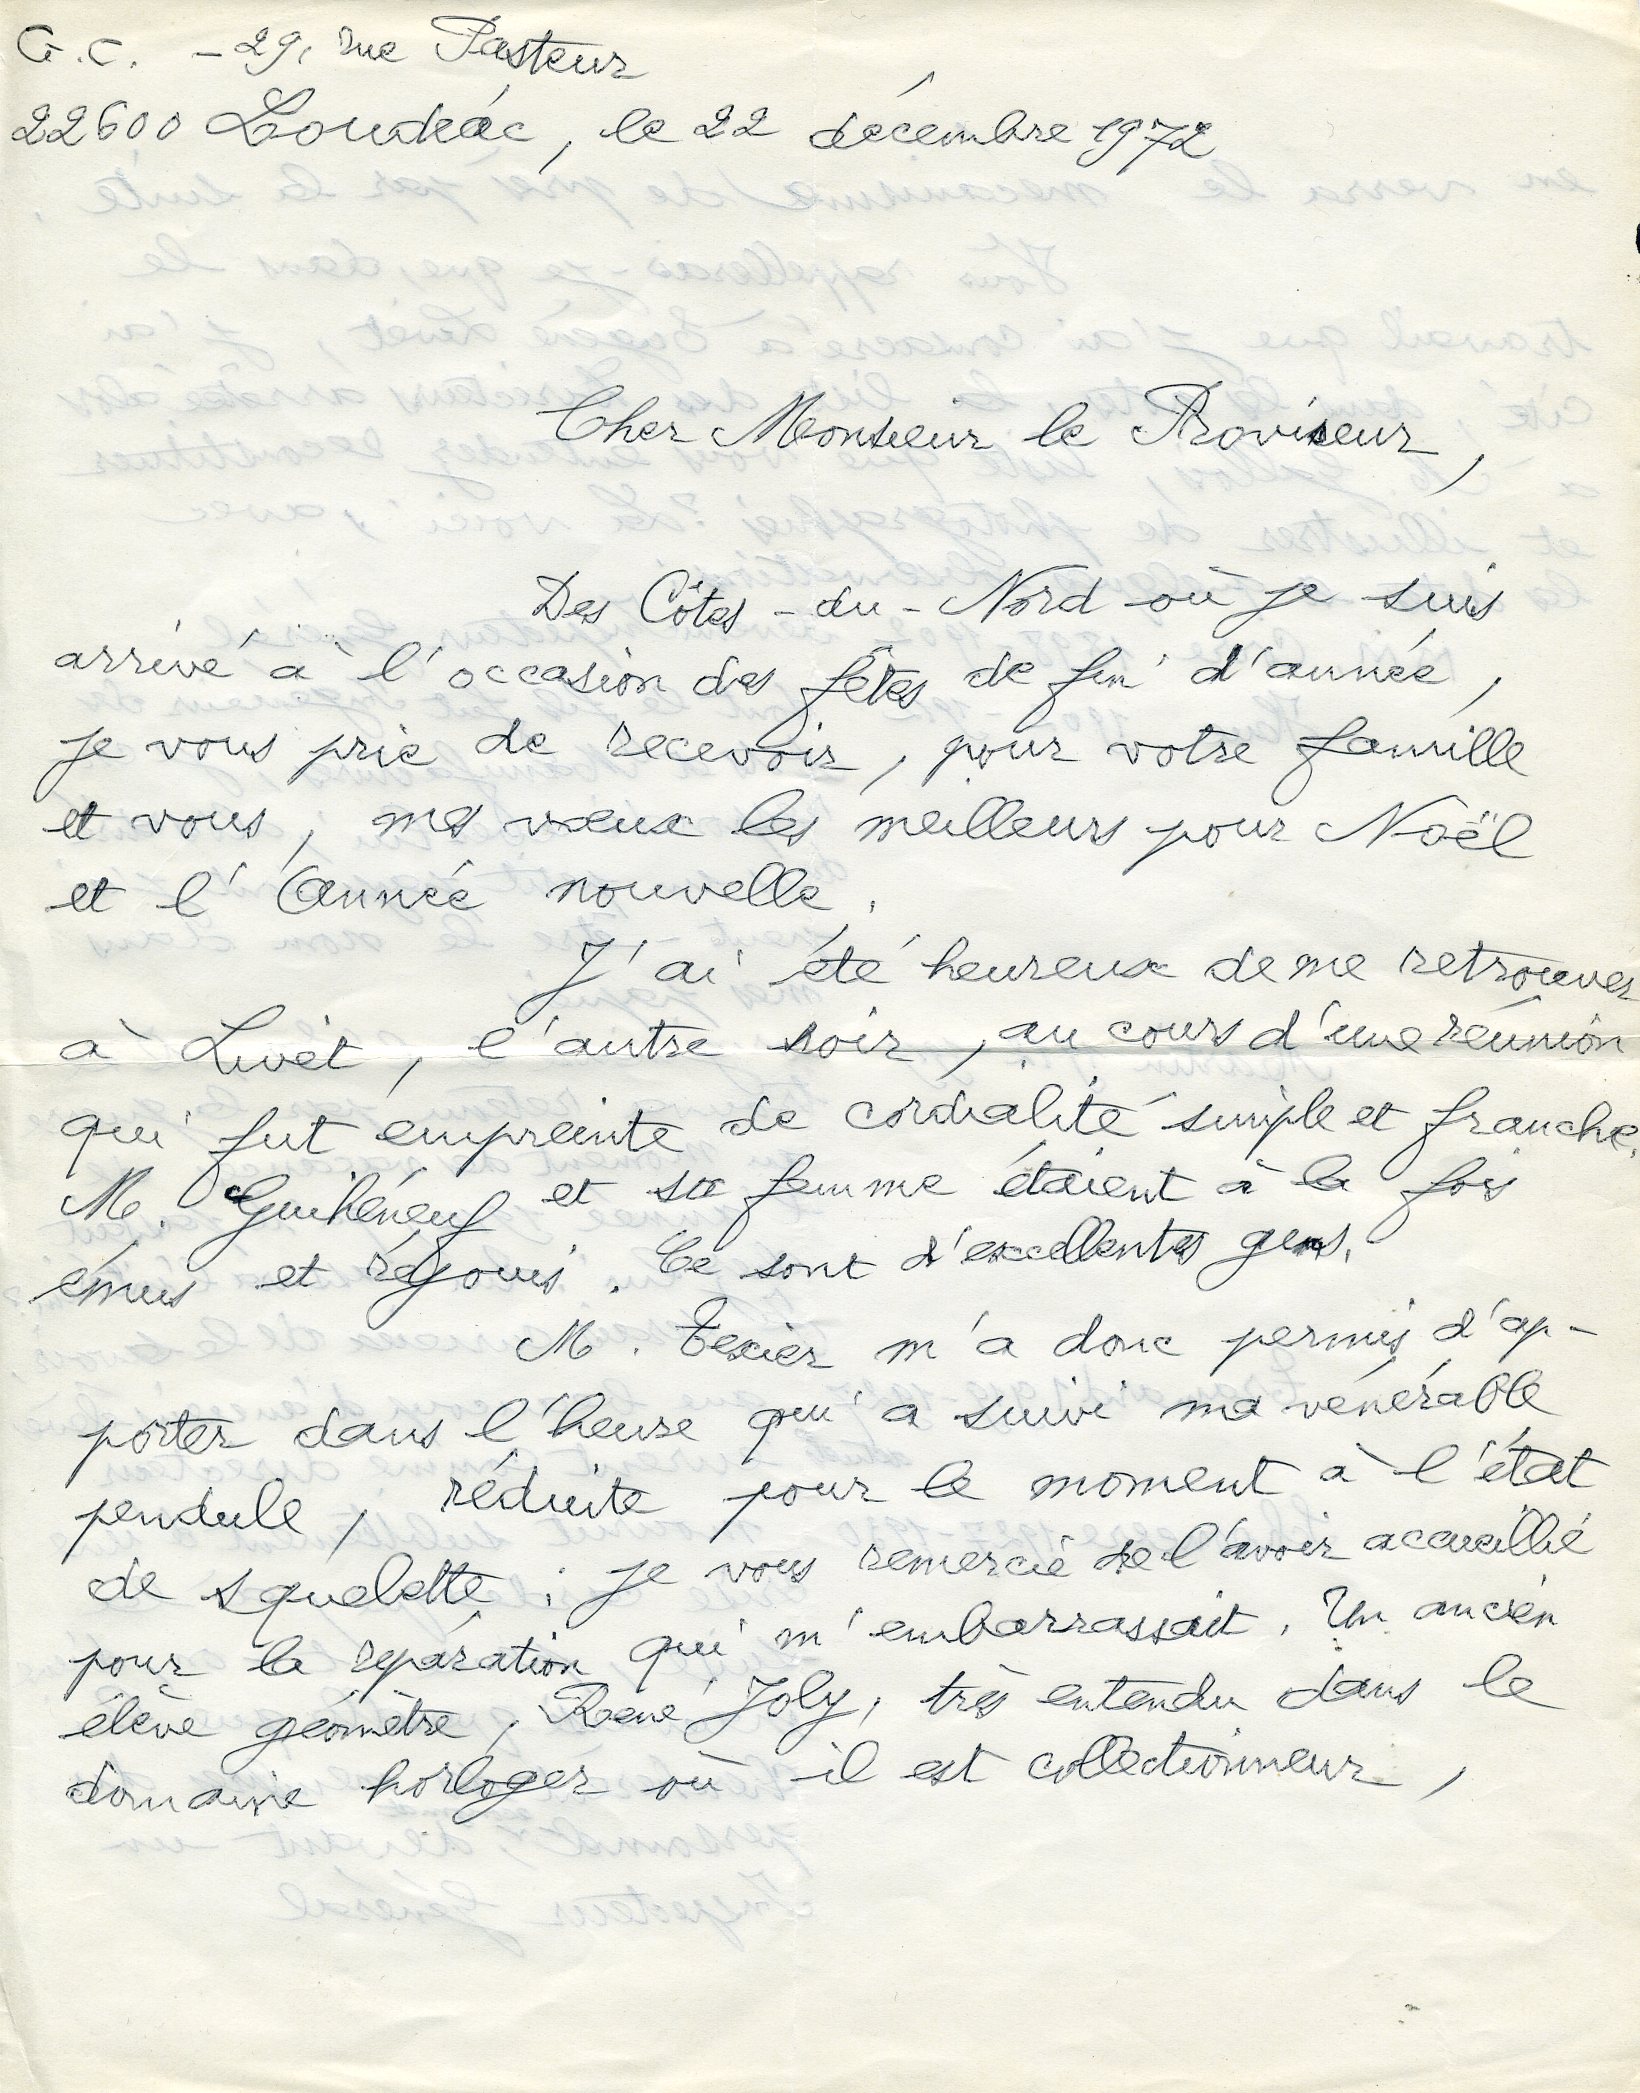 G.C. - 29, rue Pasteur
22600 Loudéac, le 22 décembre 1972
Cher Monsieur le Proviseur,
Des Côtes-du-Nord où je suis
arrivé à l'occasion des fêtes de fin d'année,
je vous prie de recevoir, pour votre famille
et vous, mes vœux les meilleurs pour Noël
et l'Année nouvelle.
J'ai été heureux de me retrouver
à Livet, l'autre soir, au cours d'une réunion
qui fut empreinte de cordialité simple et franche.
M. Guihéneuf et sa femme étaient à la fois
émus et réjouis. Ce sont d'excellentes gens.
M. Texier m'a donc permis d'ap-
porter dans l'heure qui a suivi ma vénérable
pendule, réduite pour le moment à l'état
de squelette ; je vous remercie de l'avoir accueillie
pour la réparation qui m'embarrassait. Un ancien
élève géomètre, René Joly, très entendu dans le
domaine horloger où il est collectionneur,